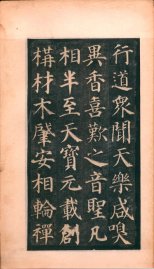 行道衆聞天樂咸嗅
異香喜歎之音聖凡
相半至天寶元載創
構材木肇安相輪禪